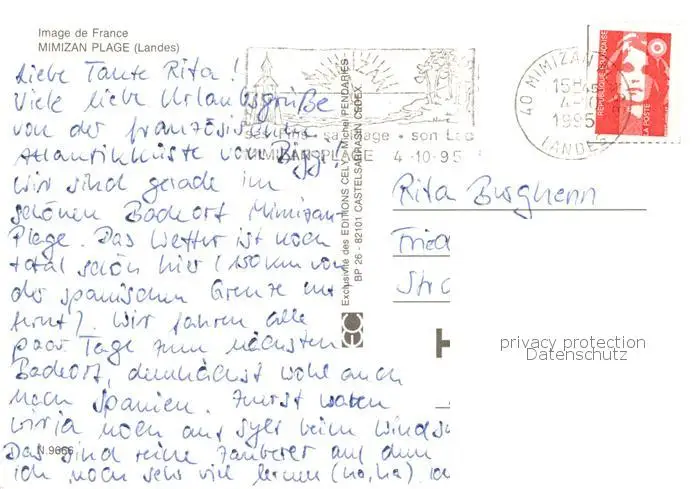 Image de France
MIMIZAN PLAGE (Landes)
Liebe Tante Rita!
Viele liebe Urlaubsgrüße
von der französischen
Atlantikküste von Biggi!
Wir sind gerade im
schönen Badeort Mimizan-
Plage. Das Wetter ist noch
total schön hier (150 km von
der spanischen Grenze ent
fernt). Wir fahren alle
paar Tage zum nächsten
Badeort, demnächst wohl auch
nach Spanien. Zuerst waren
wir ja noch auf Sylt beim Winds
Das sind reine Zauberer auf dem
ich noch sehr viel lernen (ha, ha). Ich
N.9666
Exclusivité des EDITIONS CELY - Michel PENDARIES
BP 26 - 82101 CASTELSARRASIN CEDEX
MIMIZAN
sa plage • son Lac
MIMIZAN PLAGE 4-10-95
40 MIMIZAN
15H45
4-10
1995
LANDES
REPUBLIQUE FRANÇAISE
LA POSTE
Rita Burghenn
Fried
Str
H
privacy protection
Datenschutz